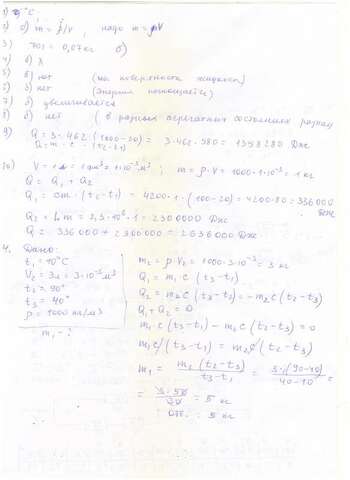 1) °C
2) б) m = ρ/V, надо m = ρV
3) 70г = 0,07 кг б)
4) в)
5) в) нет (на поверхности жидкости)
6) з) нет (энергия поглощается)
7) б) увеличивается
8) б) нет (в разных агрегатных состояниях разная
9) Q = 3·462·(1000-20) = 3·462·980 = 1358280 Дж
Q = m·c·(t2-t1)
10) V = 1л = 1дм³ = 1·10⁻³ м³; m = ρ·V = 1000·1·10⁻³ = 1 кг
Q = Q1 + Q2
Q1 = cm·(t2-t1) = 4200·1·(100-20) = 4200·80 = 336000 Дж
Q2 = Lm = 2,3·10⁶·1 = 2300000 Дж
Q = 336000 + 2300000 = 2636000 Дж
4. Дано:
t1 = 10°C
V2 = 3л = 3·10⁻³ м³
t2 = 90°
t3 = 40°
ρ = 1000 кг/м³
m1 - ?
m2 = ρ·V2 = 1000·3·10⁻³ = 3 кг
Q1 = m1 c (t3-t1)
Q2 = m2 c (t3-t2) = -m2 c (t2-t3)
Q1 + Q2 = 0
m1 c (t3-t1) - m2 c (t2-t3) = 0
m1 c (t3-t1) = m2 c (t2-t3)
m1 = m2 (t2-t3) / t3-t1 = 3·(90-40) / 40-10 =
= 3·50 / 30 = 5 кг
Отв. : 5 кг